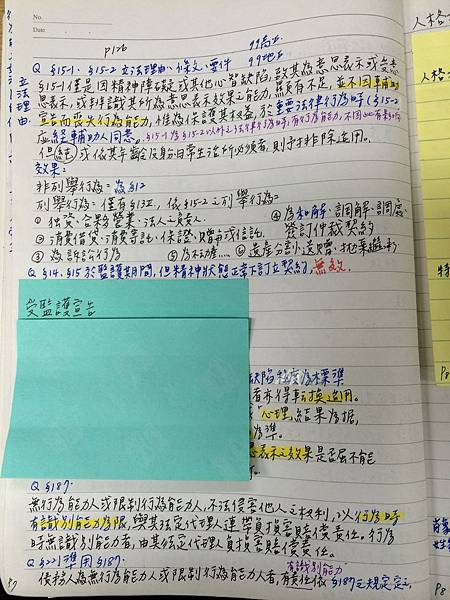 No.
Date
P126
99高考
99地特
Q §15-1、§15-2 立法理由、條文、要件
立法理由:
§15-1僅是因精神障礙或其他心智缺陷,致其為意思表示或受意
思表示,或辨識其所為意思表示效果之能力,顯有不足,並不因輔助
宣告而喪失行為能力,惟為保護其權益,於重要法律行為時(§15-2
應經輔助人同意。
但(純)或依其年齡及身份日常生活所必須者,則予排除適用。
效果:
非列舉行為:
列舉行為:僅有§13Ⅱ,依§15-2之列舉行為:
① 獨資、合夥營業、法人之負責人。
④ 為和解、調解、調處、
簽訂仲裁契約
② 消費借貸、消費寄託、保證、贈與或信託。
③ 為訴訟行為
⑤ 為不動產…
⑥ 遺產分割、遺贈、拋棄繼承
Q §14、§15 於監護期間,但精神狀態正常下訂立契約,無效。
受監護宣告
缺陷程度為標準
者亦得轉換適用。
心理結果為據,
為準。
意表示之效果是否屬不能
Q §187.
無行為能力人或限制行為能力人,不法侵害他人之權利,以行為時
有識別能力為限,與其法定代理人連帶負損害賠償責任。行為
時無識別能力者,由其法定代理人負損害賠償責任。
Q §221 準用 §187.
有識別能力
債務人為無行為能力人或限制行為能力人者,有責任依 §187之規定定之
人格
人格
特
P8